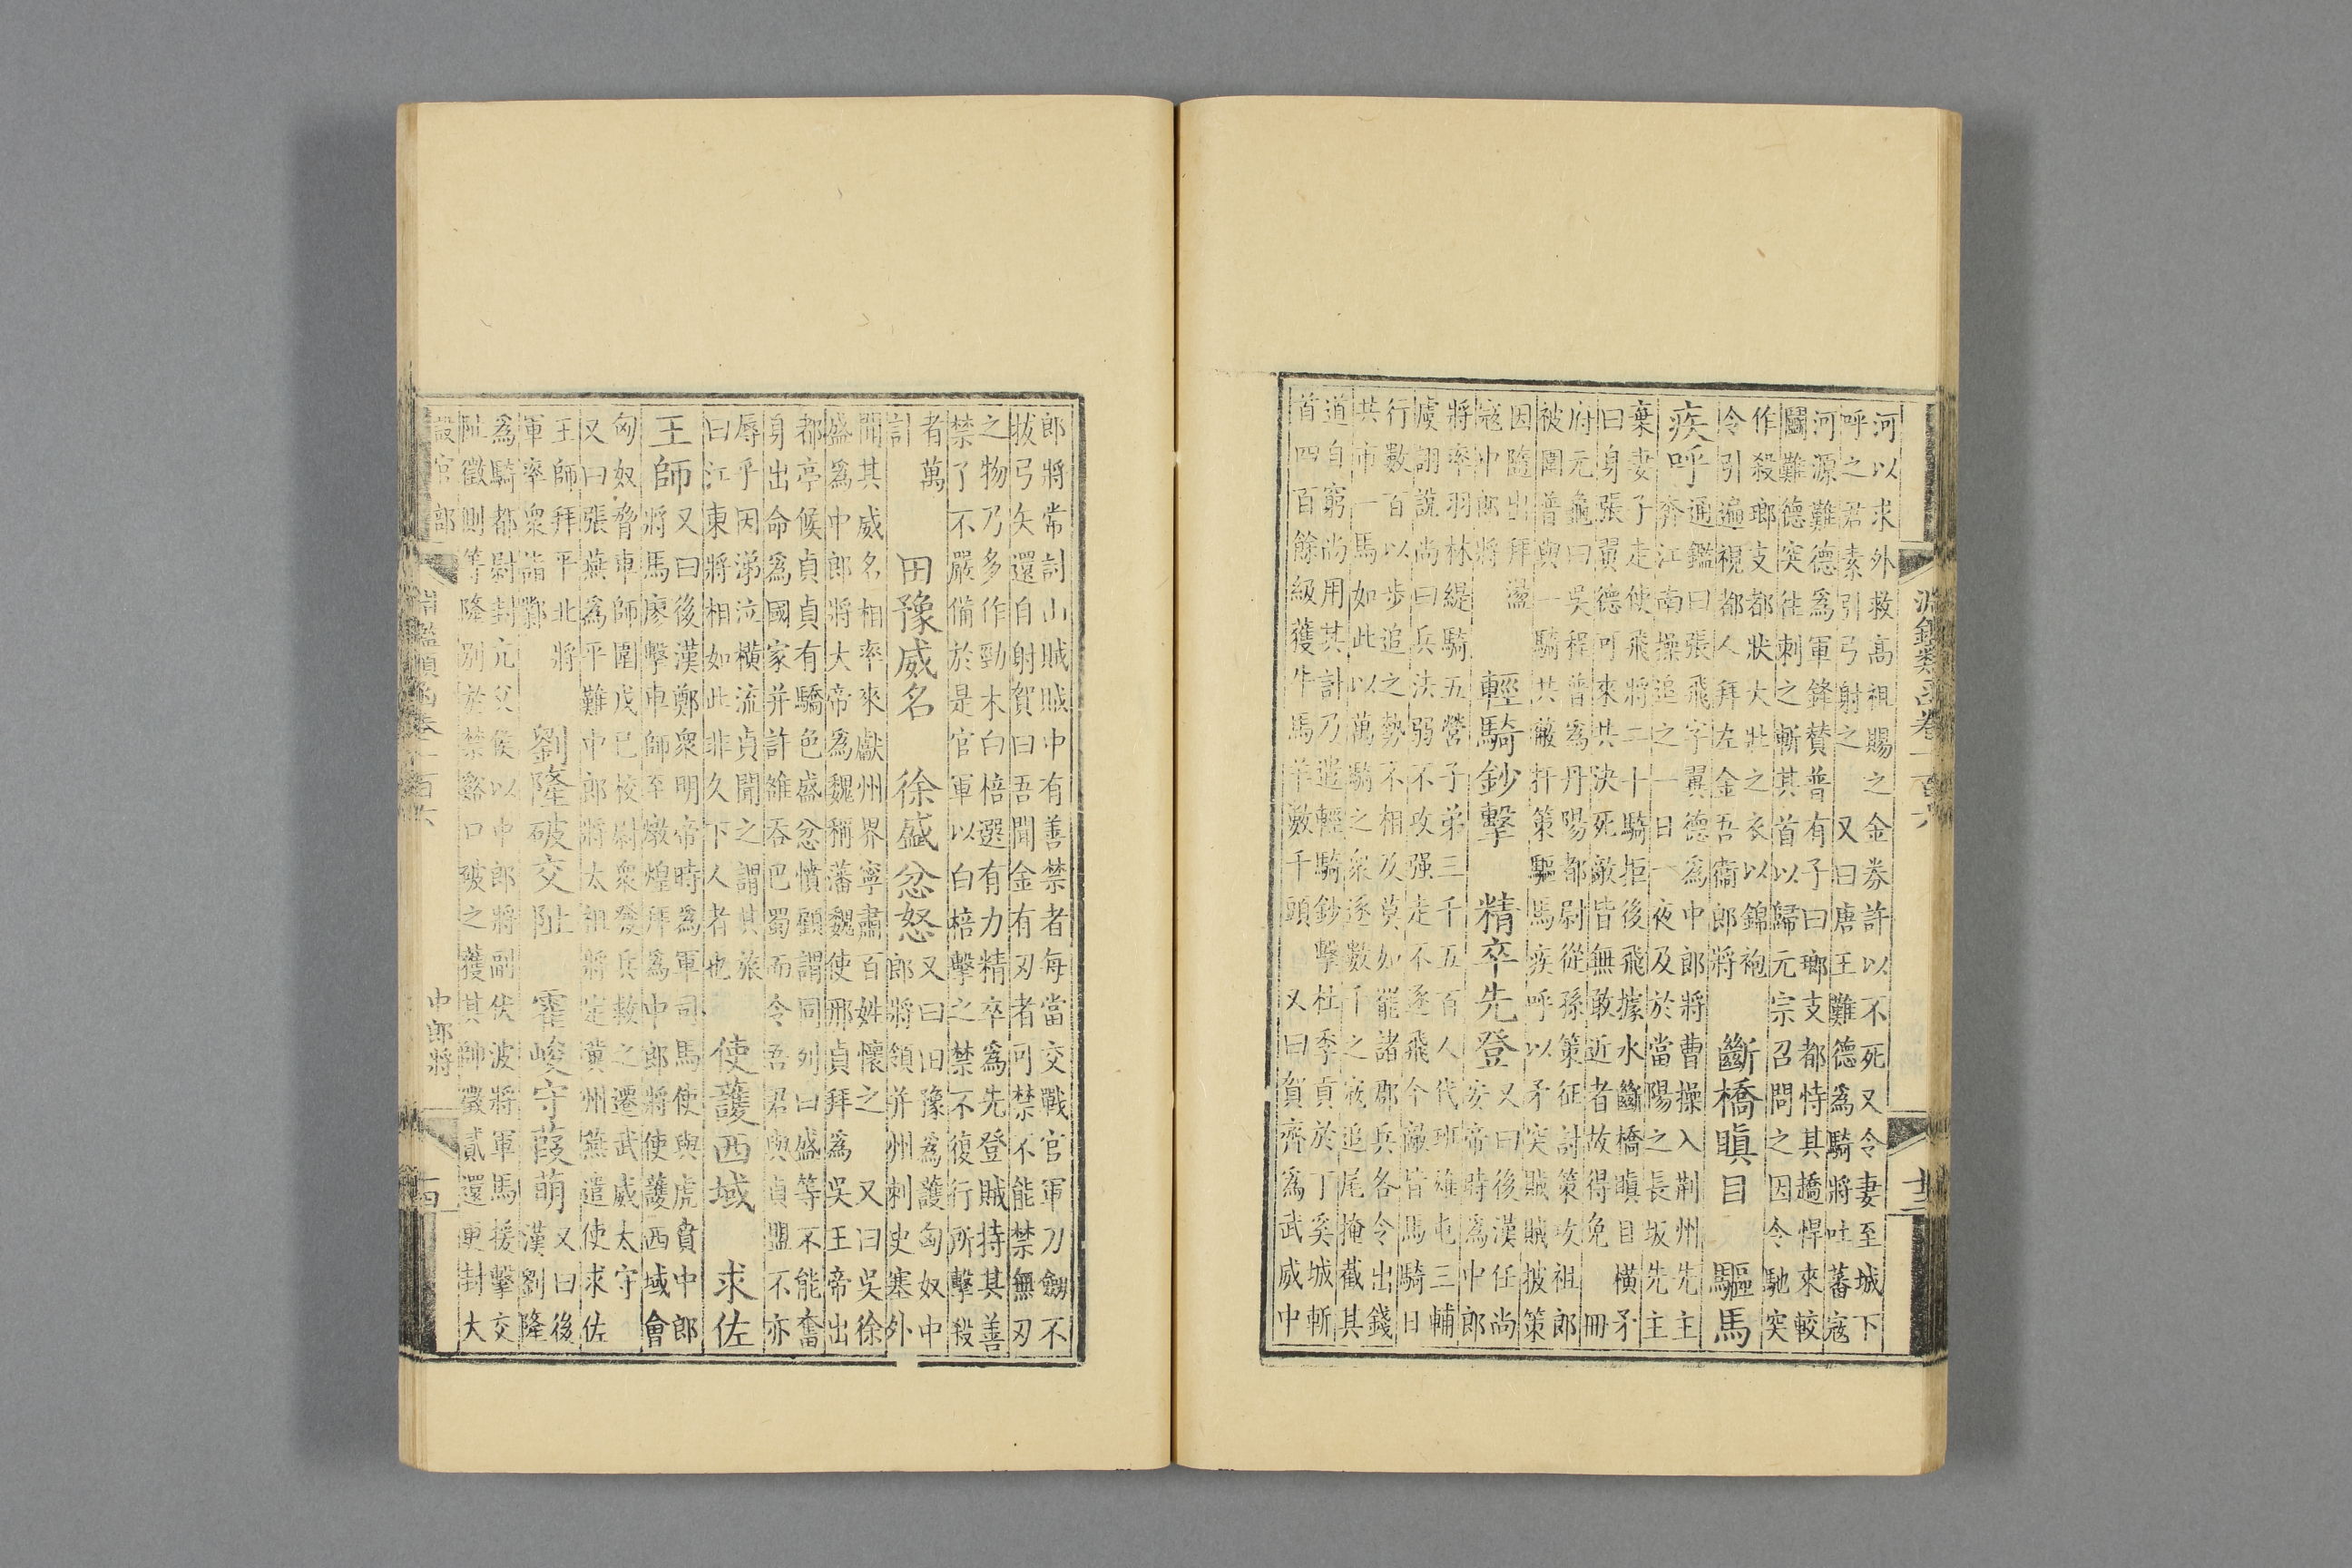 河以求外救高祖賜之金券許以不死又令妻至城下
呼之君素引弓射之　又曰唐王難德爲騎將吐蕃寇
河源難德爲軍鋒賛普有子曰瑯支都恃其趫悍來較
鬬難德突往刺之斬其首以歸元宗召問之因令馳突
作殺瑯支都狀大壯之衣以錦袍
令引遍視都人拜左金吾衞郎將
斷橋瞋目　驅馬
疾呼
通鑑曰張飛字翼德爲中郎將曹操入荆州先主
奔江南操追之一日一夜及於當陽之長坂先主
棄妻子走使飛將二十騎拒後飛據水斷橋瞋目橫矛
曰身張翼德可來共决死敵皆無敢近者故得免　冊
府元龜曰吳程普爲丹陽都尉從孫策征討策攻祖郎
被圍普與一騎共蔽扞策驅馬疾呼以矛突賊賊披策
因隨出拜盪
寇中郎將
輕騎鈔擊　精卒先登
又曰後漢任尚
安帝時爲中郎
將率羽林緹騎五營子弟三千五百人代班雄屯三輔
虞詡說尚曰兵法弱不攻强走不逐飛今虜皆馬騎日
行數百以步追之勢不相及莫如罷諸郡兵各令出錢
共市一馬如此以萬騎之衆逐數千之寇追尾掩截其
道自窮尚用其計乃遣輕騎鈔擊杜季貢於丁奚城斬
首四百餘級獲牛馬羊數千頭　又曰賀齊爲武威中
淵鑑類函卷一百六
十三
郎將常討山賊賊中有善禁者每當交戰官軍刀劒不
拔弓矢還自射賀曰吾聞金有刃者可禁不能禁無刃
之物乃多作勁木白棓選有力精卒爲先登賊持其善
禁了不嚴備於是官軍以白棓擊之禁不復行所擊殺
者萬
計
田豫威名　徐盛忿怒
又曰田豫爲護匈奴中
郎將領并州刺史塞外
聞其威名相率來獻州界寧肅百姓懷之　又曰吳徐
盛爲中郎將大帝爲魏稱藩魏使邢貞拜爲吳王帝出
都亭候貞貞有驕色盛忿憤顧謂同列曰盛等不能奮
身出命爲國家并許雒吞巴蜀而令吾君與貞盟不亦
辱乎因涕泣橫流貞聞之謂其旅
曰江東將相如此非久下人者也
使護西域　求佐
王師
又曰後漢鄭衆明帝時爲軍司馬使與虎賁中郎
將馬廖擊車師至燉煌拜爲中郎將使護西域會
匈奴脅車師圍戊已校尉衆發兵救之遷武威太守
又曰張燕爲平難中郎將太祖將定冀州燕遣使求佐
王師拜平北將
軍率衆詣鄴
劉隆破交阯　霍峻守葭萌
又曰後
漢劉隆
爲騎都尉封亢父侯以中郎將副伏波將軍馬援擊交
阯徵側等隆别於禁谿口破之獲其帥徵貳還更封大
設官部
淵鑑類函卷一百六
中郎將
十四